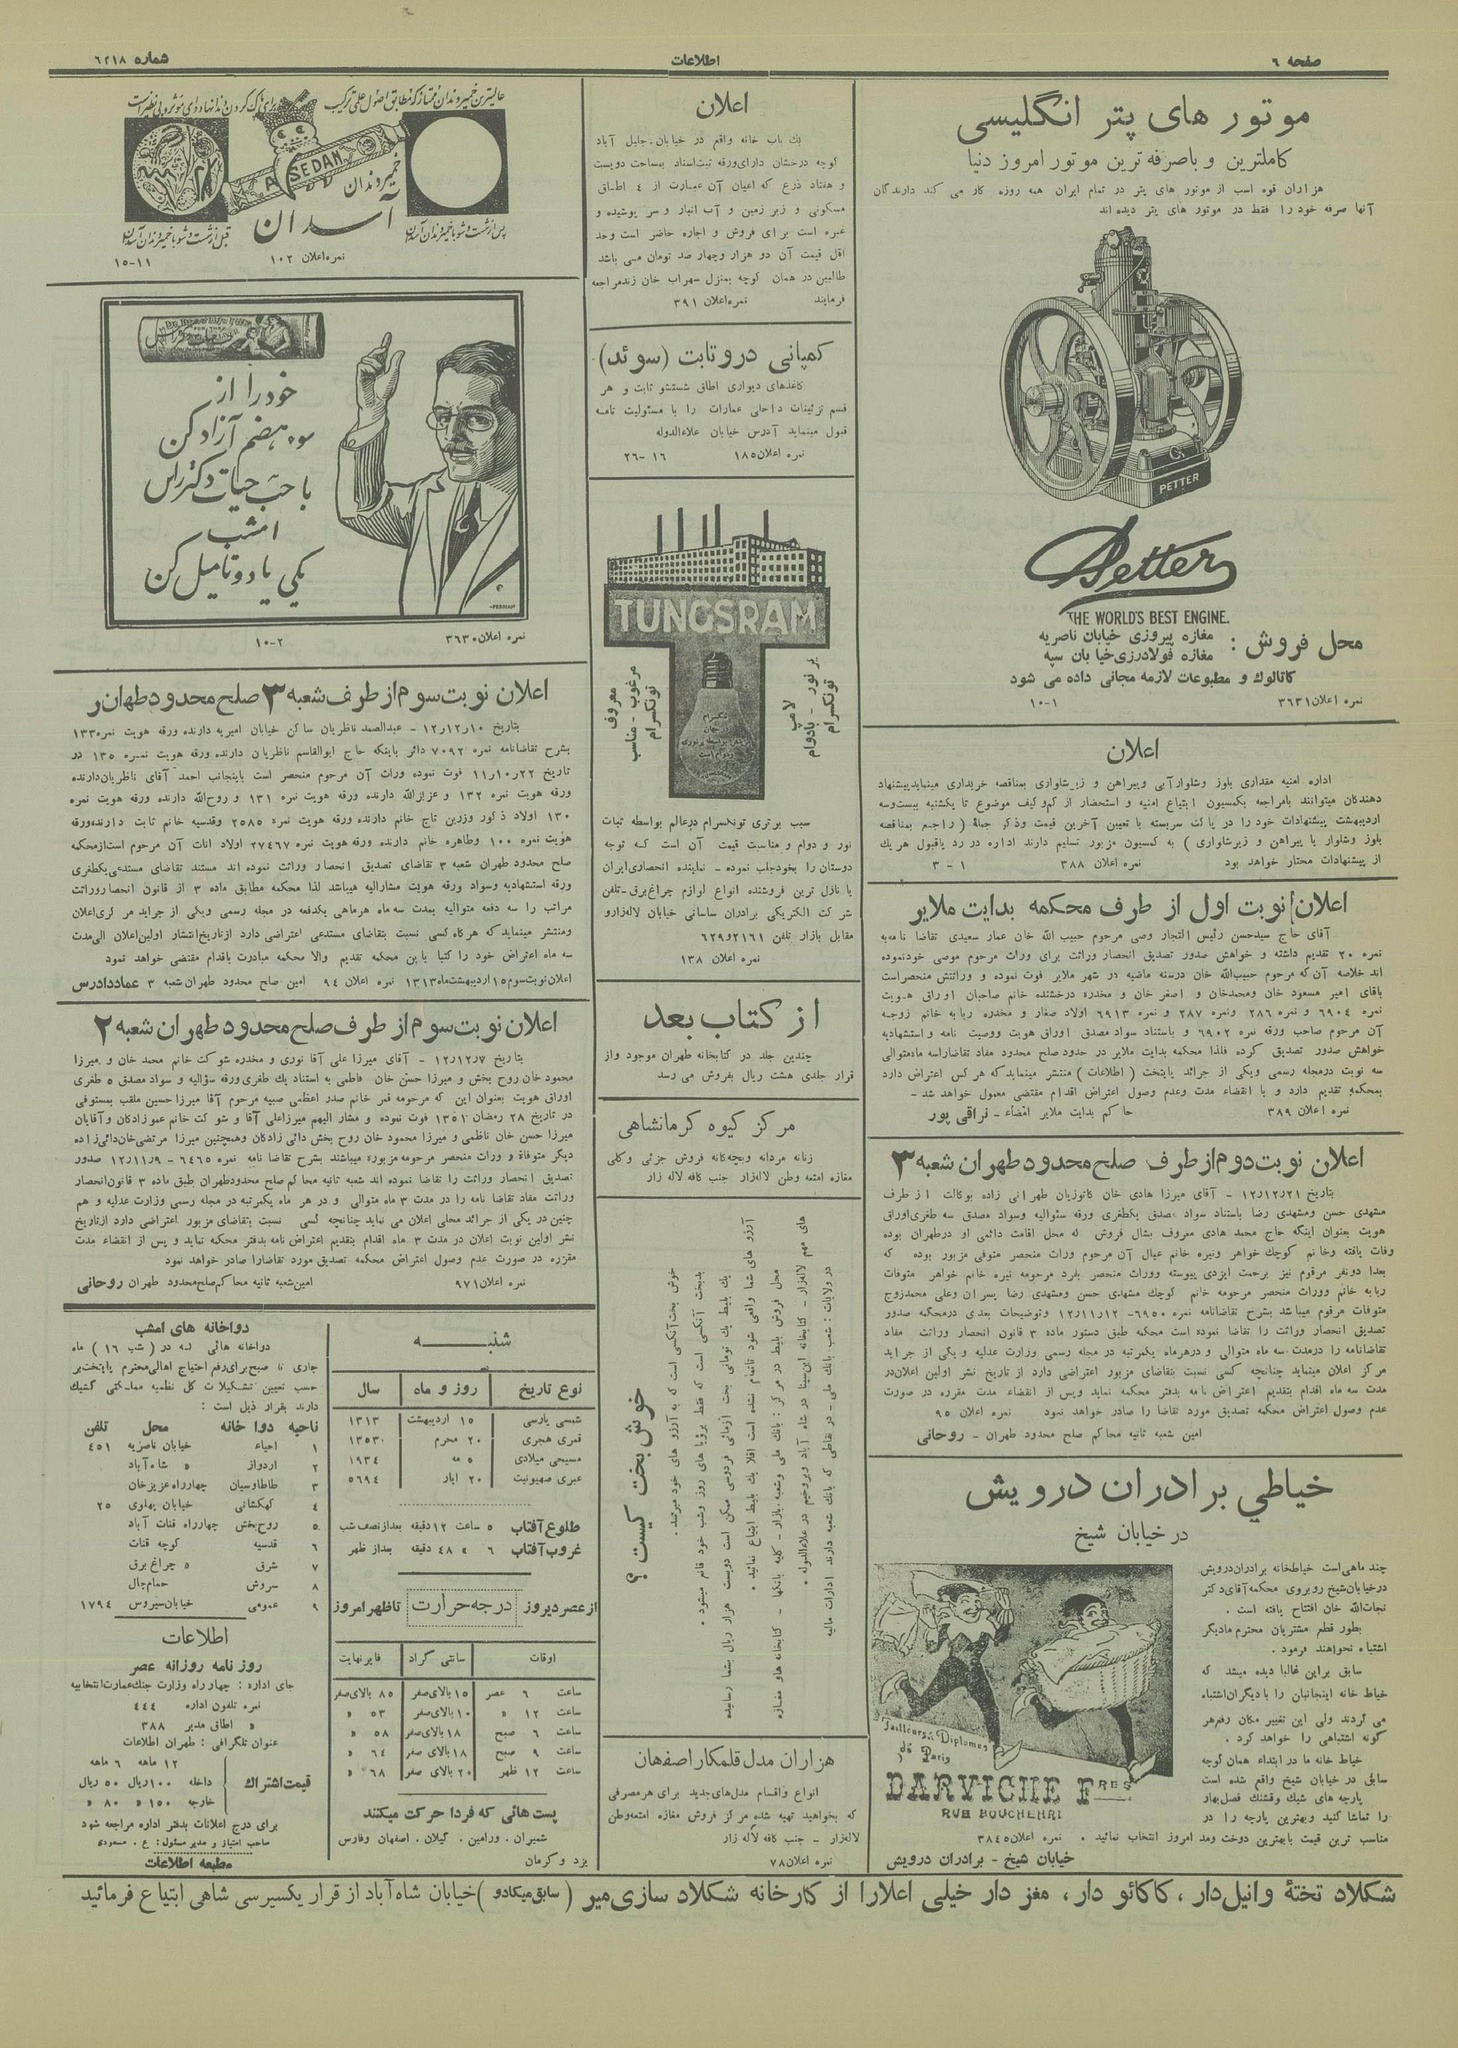 صفحه ۶
اطلاعات
موتور های پتر انگلیسی
کاملترین و باصرفه ترین موتور امروز دنیا
هزاران قوه اسب از موتور های پتر در تمام ایران همه روزه کار می کند دارندگان
آنها صرفه خود را فقط در موتور های پتر دیده اند
PETTER
Petter
THE WORLD'S BEST ENGINE.
محل فروش : مغازه پیروزی خیابان ناصریه
مغازه فولادرزی خیابان سپه
کاتالوك و مطبوعات لازمه مجانی داده می شود
نمره اعلان ۳۶۳۱ ۱-۱۰
اعلان
اداره امنیه مقداری بلوز وشلوارآبی وپیراهن و زیرشلواری بمناقصه خریداری مینماید پیشنهاد
دهندگان میتوانند بامراجعه بکمسیون ابتیاع امنیه و استحضار از کم و کیف موضوع تا یکشنبه بیست وسه
اردیبهشت پیشنهادات خود را در پاکت سربسته با تعیین آخرین قیمت وذکر جملهٔ ( راجع بمناقصه
بلوز وشلوار یا پیراهن و زیرشلواری ) به کمسیون مزبور تسلیم دارند اداره در رد یاقبول هر یك
از پیشنهادات مختار خواهد بود نمره اعلان ۳۸۸ ۱ - ۳
اعلان نوبت اول از طرف محکمه بدایت ملایر
آقای حاج سیدحسن رئیس التجار وصی مرحوم حبیب الله خان عمار سعیدی تقاضا نامه به
نمره ۲۰ تقدیم داشته و خواهش صدور تصدیق انحصار وراثت برای وراث مرحوم موصی خودنموده
اند خلاصه آن که مرحوم حبیب‌الله خان درسنه ماضیه در شهر ملایر فوت نموده و وراثتش منحصراست
باقای امیر مسعود خان ومحمدخان و اصغر خان و مخدره درخشنده خانم صاحبان اوراق هویت
نمره ۶۹۰۴ و نمره ۲۸۶ ونمره ۲۸۷ و نمره ۶۹۱۳ اولاد صغار و مخدره ربابه خانم زوجه
آن مرحوم صاحب ورقه نمره ۶۹۰۲ و باستناد سواد مصدق اوراق هویت ووصیت نامه و استشهادیه
خواهش صدور تصدیق کرده فلذا محکمه بدایت ملایر در حدود صلح محدود مفاد تقاضاراسه ماه متوالی
سه نوبت درمجله رسمی ویکی از جرائد پایتخت ( اطلاعات ) منتشر مینماید که هر کس اعتراض دارد
بمحکمه تقدیم دارد و با انقضاء مدت وعدم وصول اعتراض اقدام مقتضی معمول خواهد شد -
نمره اعلان ۳۸۹ حاکم بدایت ملایر امضاء - نراقی پور
اعلان نوبت دوم از طرف صلح محدود طهران شعبه ۳
بتاریخ ۱۲٫۱۲٫۲۱ - آقای میرزا هادی خان کاتوزیان طهرانی زاده بوکالت از طرف
مشهدی حسن ومشهدی رضا باستناد سواد مصدق یکطغری ورقه سئوالیه وسواد مصدق سه طغری اوراق
هویت بعنوان اینکه حاج محمد هادی معروف بشال فروش که محل اقامت دائمی او درطهران بوده
وفات یافته وخانم کوچك خواهر ونیره خانم عیال آن مرحوم وراث منحصر متوفی مزبور بوده که
بعدا دونفر مرقوم نیز برحمت ایزدی پیوسته ووراث منحصر بفرد مرحومه نیره خانم خواهر متوفات
ربابه خانم ووراث منحصر مرحومه خانم کوچك مشهدی حسن ومشهدی رضا پسران وعلی محمدزوج
متوفات مرقوم میباشد بشرح تقاضانامه نمره ۶۹۵۰- ۱۲٫۱۱٫۱۲ وتوضیحات بعدی درمحکمه صدور
تصدیق انحصار وراثت را تقاضا نموده است محکمه طبق دستور ماده ۳ قانون انحصار وراثت مفاد
تقاضانامه را درمدت سه ماه متوالی و درهرماه یکمرتبه در مجله رسمی وزارت عدلیه و یکی از جراید
مرکز اعلان مینماید چنانچه کسی نسبت بتقاضای مزبور اعتراضی دارد از تاریخ نشر اولین اعلان در
مدت سه ماه اقدام بتقدیم اعتراض نامه بدفتر محکمه نماید وپس از انقضاء مدت مقرره در صورت
عدم وصول اعتراض محکمه تصدیق مورد تقاضا را صادر خواهد نمود نمره اعلان ۹۵
امین شعبه ثانیه محاکم صلح محدود طهران - روحانی
خیاطی برادران درویش
در خیابان شیخ
چند ماهی است خیاطخانه برادران درویش
درخیابان شیخ روبروی محکمه آقای دکتر
نجات‌الله خان افتتاح یافته است .
بطور قطع مشتریان محترم ما دیگر
اشتباه نخواهند فرمود .
سابق براین غالبا دیده میشد که
خیاط خانه اینجانبان را با دیگران اشتباه
می کردند ولی این تغییر مکان رفع هر
گونه اشتباهی را خواهد کرد .
خیاط خانه ما در ابتداء همان کوچه
سابق در خیابان شیخ واقع شده است
پارچه های شیك وقشنك فصل بهار
را تماشا کنید وبهترین پارچه را در
مناسب ترین قیمت بابهترین دوخت ومد امروز انتخاب نمائید . نمره اعلان ۳۸۴۵
خیابان شیخ - برادران درویش
Tailleurs Diplomés
de Paris
DARVICHE FRES
RUE BOUCHEHRI
اعلان
یك باب خانه واقع در خیابان جلیل آباد
کوچه درخشان دارای ورقه ثبت اسناد بمساحت دویست
و هفتاد ذرع که اعیان آن عبارت از ۴ اطاق
مسکونی و زیر زمین و آب انبار و سر پوشیده و
غیره است برای فروش و اجاره حاضر است وحد
اقل قیمت آن دو هزار وچهار صد تومان می باشد
طالبین در همان کوچه بمنزل سهراب خان زند مراجعه
فرمایند نمره اعلان ۳۹۱
کمپانی دروتابت (سوئد)
کاغذهای دیواری اطاق شستشو ثابت و هر
قسم تزئینات داخلی عمارات را با مسئولیت تامه
قبول مینماید آدرس خیابان علاءالدوله
نمره اعلان ۱۸۵ ۱۶ -۲۶
TUNGSRAM
پر نور - بادوام
لامپ
تونگسرام
معروف
مرغوب - مناسب
تونگسرام
سبب برتری تونگسرام درعالم بواسطه ثبات
نور و دوام و مناسبت قیمت آن است که توجه
دوستان را بخودجلب نموده - نماینده انحصاری ایران
با نازل ترین فروشنده انواع لوازم چراغ برق - تلفن
شرکت الکتریکی برادران ساسانی خیابان لاله‌زارو
مقابل بازار تلفن ۲۱۶۱و۶۲۹
نمره اعلان ۱۳۸
از کتاب بعد
چندین جلد در کتابخانه طهران موجود واز
قرار جلدی هشت ریال بفروش می رسد
مرکز گیوه کرمانشاهی
زنانه مردانه وبچه‌گانه فروش جزئی و کلی
مغازه امتعه وطن لاله‌زار جنب کافه لاله زار
خوش بخت کیست ؟
خوش بخت آنکسی است که به آرزو های خود میرسد .
بدبخت آنکسی است که فقط برؤیا های روز وشب خود قانع میشود .
یك بلیط یك تومانی بخت آزمائی فردوسی ممکن است دویست هزار ریال بشما رسانیده
آرزو های شما واقعی شود تا تمام نشده است اقلا یك بلیط ابتیاع نمائید .
محل فروش بلیط در مرکز : بانك ملی وشعبه بازار - کلیه بانکها - کتابخانه ها و مغازه
های مهم لاله‌زار - کتابخانه ابن‌سینا در شاه آباد وبروخیم در علاءالدوله .
در ولایات : شعب بانك ملی - در نقاطی که بانك شعبه ندارند ادارات مالیه
هزاران مدل قلمکار اصفهان
انواع واقسام مدل‌های جدید برای هر مصرفی
که بخواهید تهیه شده مرکز فروش مغازه امتعه وطن
لاله‌زار - جنب کافه لاله زار
نمره اعلان ۷۸
عالیترین خمیر دندان ممتاز که مطابق اصول علمی ترکیب
برای پاک کردن دندانها دوای مؤثر و بی نظیر است
ASEDAN
خمیر دندان
آسدان
پس از شست و شو با خمیر دندان آسدان
قبل از شست و شو با خمیر دندان آسدان
نمره اعلان ۱۰۲ ۱۱-۱۵
خود را از
سوء هضم آزاد کن
با حب حیات دکتر راس
امشب
یکی یا دو تا میل کن
-PERSIAN
نمره اعلان ۳۶۳۰ ۲-۱۰
اعلان نوبت سوم از طرف شعبه ۳ صلح محدود طهران
بتاریخ ۱۲٫۱۲٫۱۰ - عبدالصمد ناظریان ساکن خیابان امیریه دارنده ورقه هویت نمره ۱۳۳
بشرح تقاضانامه نمره ۷۰۹۲ دائر باینکه حاج ابوالقاسم ناظریان دارنده ورقه هویت نمره ۱۳۵ در
تاریخ ۱۱٫۱۰٫۲۲ فوت نموده وراث آن مرحوم منحصر است باینجانب احمد آقای ناظریان دارنده
ورقه هویت نمره ۱۳۲ و عزیزالله دارنده ورقه هویت نمره ۱۳۱ و روح‌الله دارنده ورقه هویت نمره
۱۳۰ اولاد ذکور وزرین تاج خانم دارنده ورقه هویت نمره ۲۵۸۵ وقدسیه خانم ثابت دارنده ورقه
هویت نمره ۱۰۰ وطاهره خانم دارنده ورقه هویت نمره ۲۷۴۶۷ اولاد اناث آن مرحوم است ازمحکمه
صلح محدود طهران شعبه ۳ تقاضای تصدیق انحصار وراثت نموده اند مستند تقاضای مستدعی یکطغری
ورقه استشهادیه وسواد ورقه هویت مشارالیه میباشد لذا محکمه مطابق ماده ۳ از قانون انحصار وراثت
مراتب را سه دفعه متوالیه بمدت سه ماه هرماهی یکدفعه در مجله رسمی ویکی از جراید مرکزی اعلان
ومنتشر مینماید که هرگاه کسی نسبت بتقاضای مستدعی اعتراضی دارد از تاریخ انتشار اولین اعلان الی مدت
سه ماه اعتراض خود را کتبا باین محکمه تقدیم والا محکمه مبادرت باقدام مقتضی خواهد نمود
اعلان نوبت سوم ۱۵ اردیبهشت ماه ۱۳۱۳ نمره اعلان ۹۴ امین صلح محدود طهران شعبه ۳ عماد دادرس
اعلان نوبت سوم از طرف صلح محدود طهران شعبه ۲
بتاریخ ۱۲٫۱۲٫۷ - آقای میرزا علی آقا نوری و مخدره شوکت خانم محمد خان و میرزا
محمود خان روح بخش و میرزا حسن خان فاطمی به استناد یك طغری ورقه سؤالیه و سواد مصدق ۵ طغری
اوراق هویت بعنوان این که مرحومه قمر خانم صدر اعظمی صبیه مرحوم آقا میرزا حسین ملقب بمستوفی
در تاریخ ۲۸ رمضان ۱۳۵۱ فوت نموده و مشار الیهم میرزا علی آقا و شوکت خانم عموزادگان و آقایان
میرزا حسن خان ناظمی و میرزا محمود خان روح بخش دائی زادگان وهمچنین میرزا مرتضی خان دائی زاده
دیگر متوفاة و وراث منحصر مرحومه مزبوره میباشند بشرح تقاضا نامه نمره ۶۴۶۵ - ۱۲٫۱۱٫۹ صدور
تصدیق انحصار وراثت را تقاضا نموده اند شعبه ثانیه محاکم صلح محدود طهران طبق ماده ۳ قانون انحصار
وراثت مفاد تقاضا نامه را در مدت ۳ ماه متوالی و در هر ماه یکمرتبه در مجله رسمی وزارت عدلیه و هم
چنین در یکی از جرائد محلی اعلان می نماید چنانچه کسی نسبت بتقاضای مزبور اعتراضی دارد ازتاریخ
نشر اولین نوبت اعلان در مدت ۳ ماه اقدام بتقدیم اعتراض نامه بدفتر محکمه نماید و پس از انقضاء مدت
مقرره در صورت عدم وصول اعتراض محکمه تصدیق مورد تقاضارا صادر خواهد نمود
نمره اعلان ۹۷۱ امین شعبه ثانیه محاکم صلح محدود طهران روحانی
شنبه
نوع تاریخ روز و ماه سال
شمسی پارسی ۱۵ اردیبهشت ۱۳۱۳
قمری هجری ۲۰ محرم ۱۳۵۳
مسیحی میلادی ۵ مه ۱۹۳۴
عبری صهیونیت ۲۰ ایار ۵۶۹۴
طلوع آفتاب ۵ ساعت ۱۲ دقیقه بعد از نصف شب
غروب آفتاب ۶ » ۴۸ دقیقه بعد از ظهر
از عصر دیروز درجه حرارت تا ظهر امروز
اوقات سانتی گراد فارنهایت
ساعت ۶ عصر ۱۵ بالای صفر ۸۵ بالای صفر
ساعت ۱۲ » ۱۰ بالای صفر ۵۳ »
ساعت ۶ صبح ۱۸ بالای صفر ۵۸ »
ساعت ۹ صبح ۱۸ بالای صفر ۶۴ »
ساعت ۱۲ ظهر ۲۰ بالای صفر ۶۸ »
پست هائی که فردا حرکت میکنند
شمیران . ورامین . گیلان . اصفهان وفارس
یزد و کرمان
دواخانه های امشب
دواخانه هائی که در ( شب ۱۶ ) ماه
جاری تا صبح برای رفع احتیاج اهالی محترم پایتخت بر
حسب تعیین تشکیلات کل نظمیه مملکتی کشیك
دارند بقرار ذیل است :
ناحیه دوا خانه محل تلفن
۱ احیاء خیابان ناصریه ۴۵۱
۲ اردواز » شاه آباد
۳ طاطاوسیان چهارراه عزیزخان
۴ کهکشانی خیابان پهلوی ۲۵
۵ روح‌بخش چهارراه قنات آباد
۶ قدسیه کوچه قنات
۷ شرق » چراغ برق
۸ سروش حمام چال
۹ عمومی خیابان سیروس ۱۷۹۴
اطلاعات
روزنامه روزانه عصر
جای اداره : چهار راه وزارت جنك عمارت انتخابیه
نمره تلفون اداره ۴۴۴
» اطاق مدیر ۳۸۸
عنوان تلگرافی : طهران اطلاعات
۱۲ ماهه ۶ ماهه
قیمت اشتراك داخله ۱۰۰ ریال ۵۰ ریال
خارجه ۱۵۰ » ۸۰ »
برای درج اعلانات بدفتر اداره مراجعه شود
صاحب امتیاز و مدیر مسئول : ع . مسعودی
مطبعه اطلاعات
شکلاد تختهٔ وانیل دار ، کاکائو دار ، مغز دار خیلی اعلارا از کارخانه شکلاد سازی میر ( سابق میکادو ) خیابان شاه آباد از قرار یکسیر سی شاهی ابتیاع فرمائید